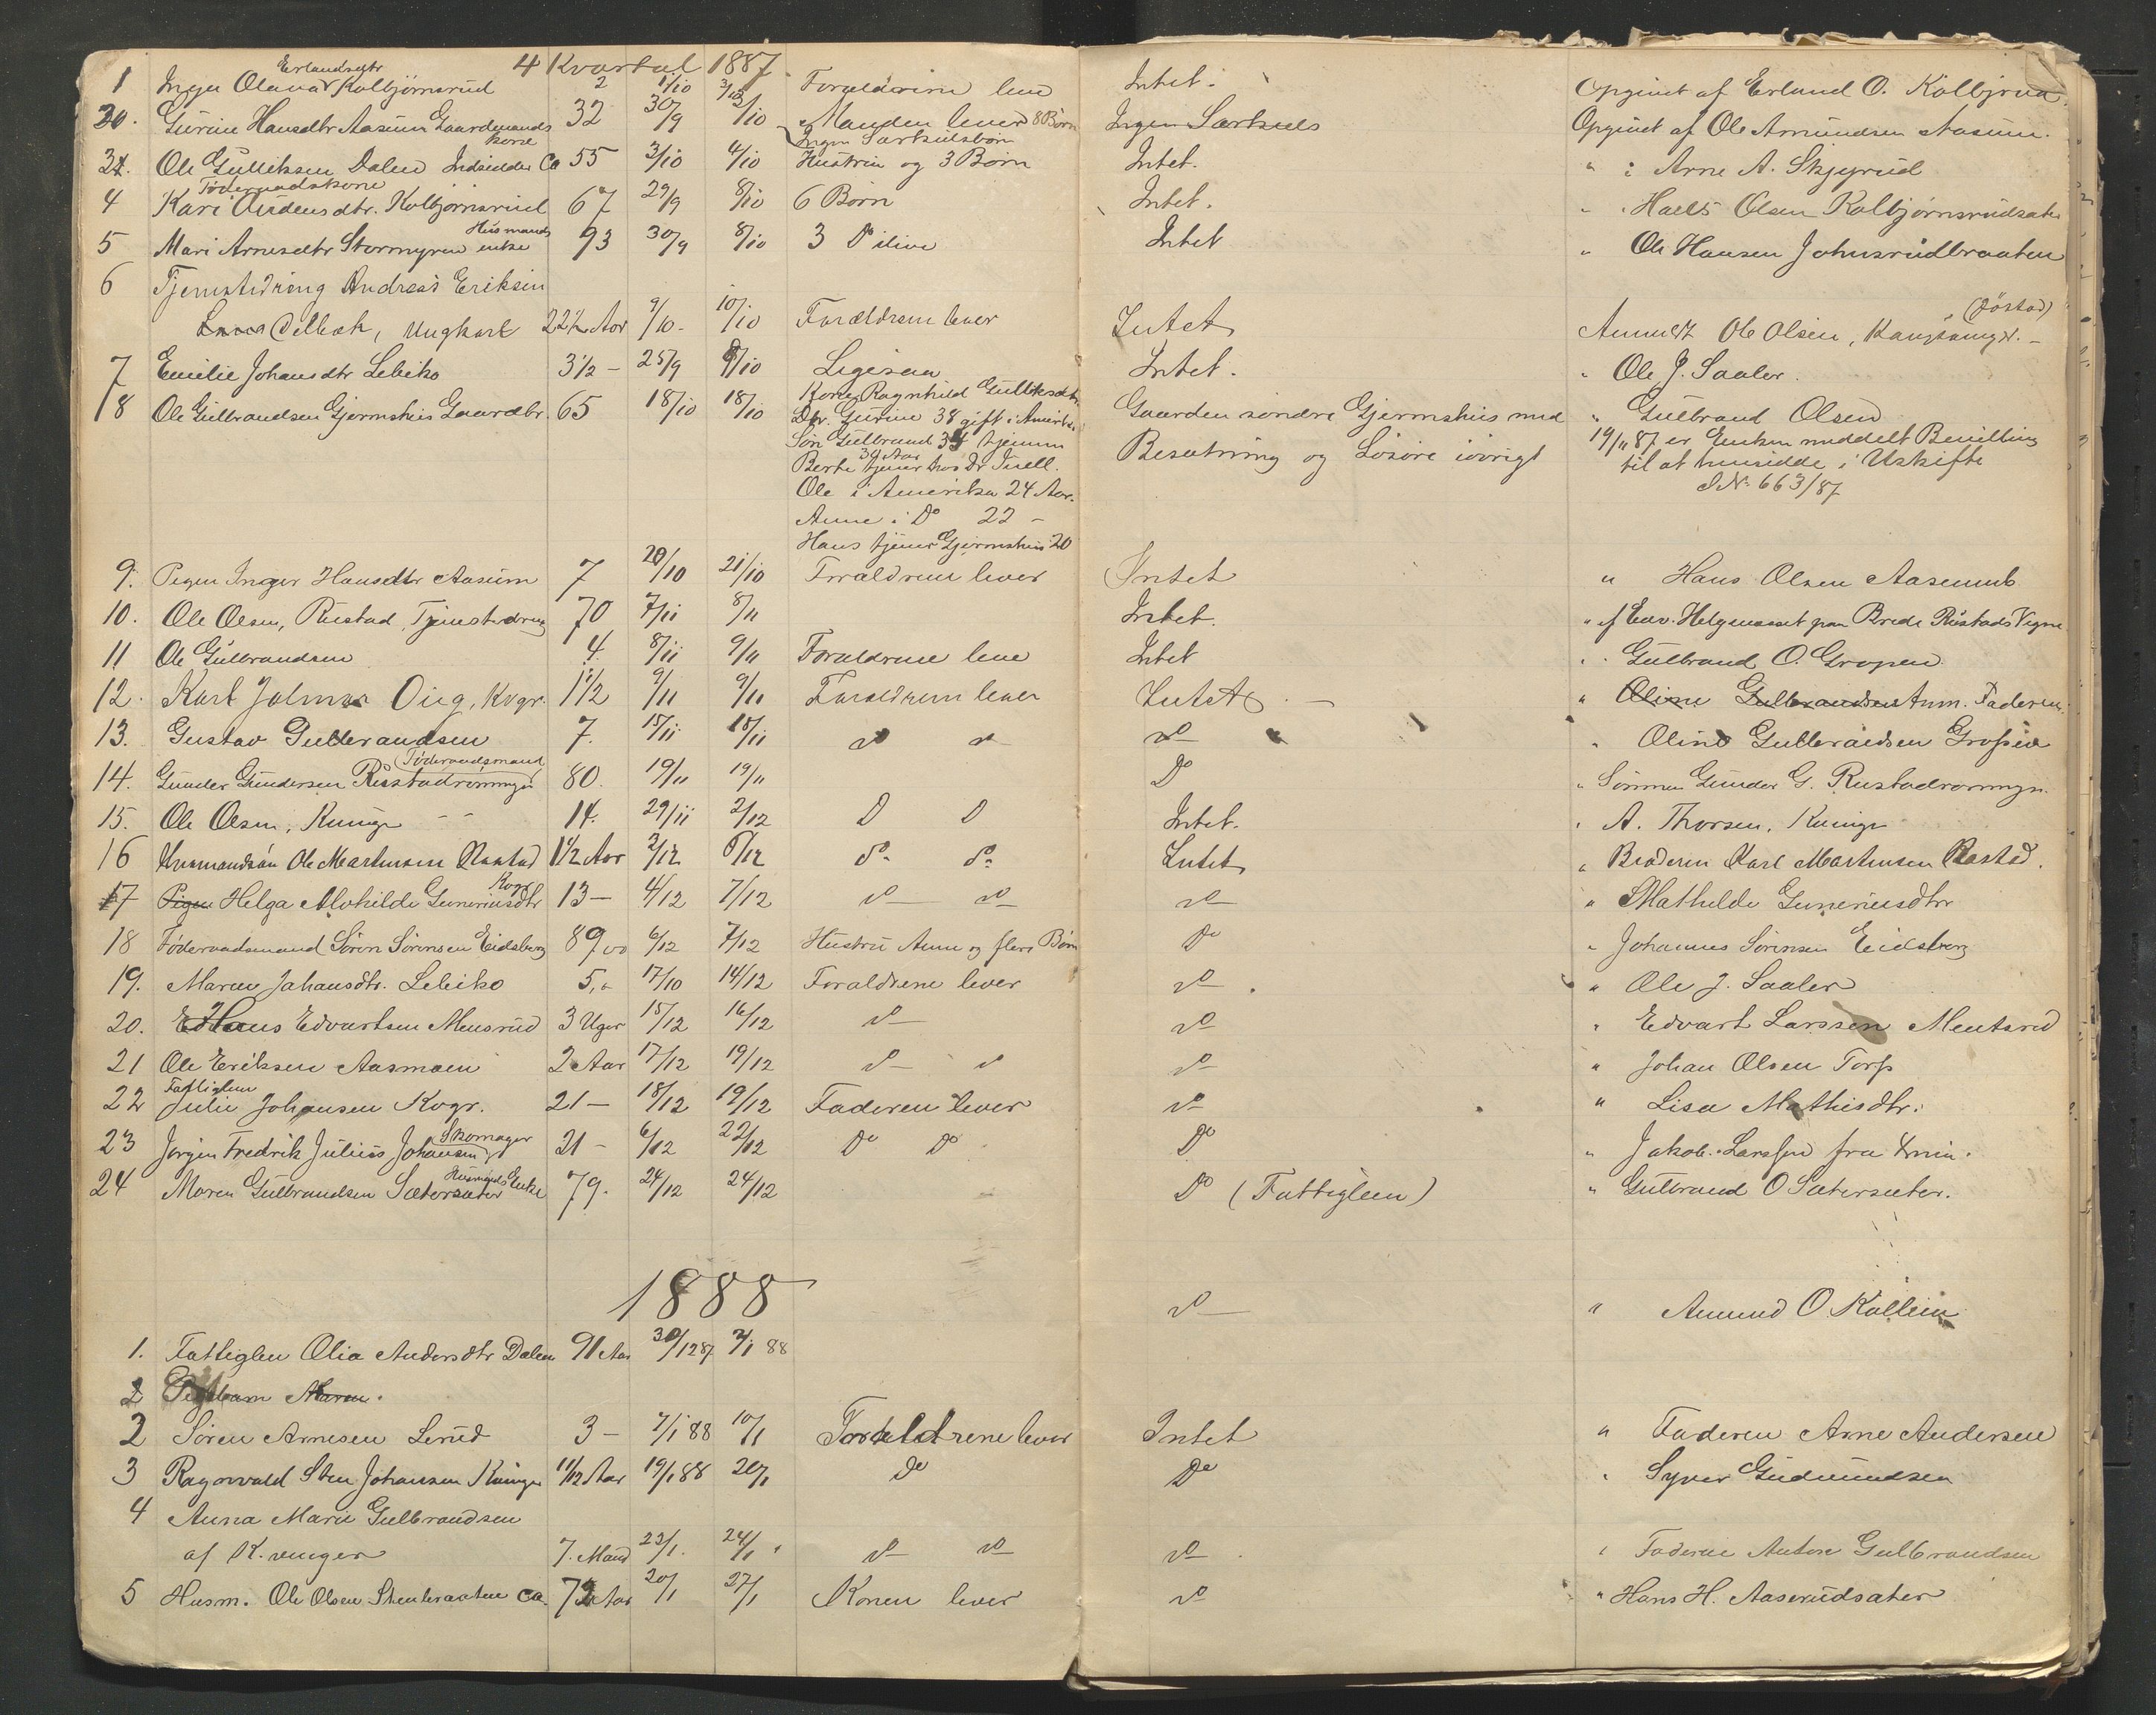 4 Kvartal 1887.
Erlandsdtr
1 Inger Olava Kolbjørnsrud 2 1/10 3/10 Forældrene leve Intet. Opgivet af Erland O. Kolbjrud.
20. Gurine Hansdtr Aasum Gaardmands 32 30/9 3/10 Manden lever 8 Børn Ingen Særkuls Opgivet af Ole Amundsen Aasum.
kone Ingen Særkulsbørn
3 Ole Gulliksen Dalen Indsidder Ca 55 3/10 4/10 Hustru og 3 Børn Intet. " : Arne A. Skjyrud
Føderaadskone
4 Kari Audensdtr. Kolbjørnsrud 67 29/9 8/10 6 Børn Intet. " Olsen Kolbjørnsrudsæter
Husmands
5 Mari Arnesdtr Stormyren enke 93 30/9 8/10 3 Do ilive Intet " Ole Hansen Johnsrudbraaten
6 Tjenstedreng Andreas Eriksen
Ungkarl 22½ Aar 9/10 - 10/10 Forældrene lever Intet Anmeldt Ole Olsen,
7 Emilie Johansdtr Lebiko 3½ - 25/9 8/10 Ligesaa Intet. " Ole J. Saaler.
8 Ole Gulbrandsen Gjermshus Gaardbr. 65 18/10 18/10 Kone Ragnhild Gulliksdtr. Gaarden søndre Gjermshus med " Gulbrand Olsen
Dtr. Gurine 38 gift i Amerika
Besætning og Løsøre iøvrigt 19/11 87 er Enken meddelt Bevilling
Søn Gulbrand 34 hjemme
30 Aar
Berte tjener hos Dr Tuell. til at hensidde i Uskifte
Ole i Amerika 24 Aar. J.N. 663/87
Anne i Do 22 -
Hans tjener Gjermshus 20
9. Pigen Inger Hansdtr Aasum 7 20/10 21/10 Forældrene lever Intet " Hans Olsen
10. Ole Olsen, Rustad, Tjenstedreng 70 7/11 8/11 Intet. " af Edv. Helgeneset paa Brede Rustads Vegne
11 Ole Gulbrandsen 4. 8/11 9/11 Forældrene leve Intet " Gulbrand O. Gropen
12. Karl Jalmar Oig, Kvgr. 1½ 9/11 9/11 Forældrene lever Intet. - " Oline Gulbrandsen Anm. Faderen.
13. Gustav Gulbrandsen 7. 15/11 15/11 do do do " Oline Gulbrandsen Gropen
Føderaadsmand
14. Gunder Gundersen Rustadrønningen 80. 19/11 19/11 Do " Sønnen Gunder G. Rustadrønningn.
15. Ole Olsen, Kvinge - - 14. 29/11 2/12 D D Intet. " A. Thorsen, Kvinge
16 Husmandsøn Ole Martinsen Rastad 1½ Aar 3/12 6/12 do do Intet " Broderen Karl Martinsen Rastad.
Kvgr
17 Pigen Helga Mathilde Guneriusdtr 13 - 4/12 7/12 do do do " Mathilde Guneriusdtr
18 Føderaadsmand Søren Sørensen Eidsberg 89 6/12 7/12 Hustru Anne og flere Børn Do " Johannes Sørensen Eidsberg
19. Maren Johansdtr. Lebiko 5, " 17/10 14/12 Forældrene lever do. " Ole J. Saaler
20. Hans Edvartsen Mensrud 3 Uger 15/12 16/12 do do " Edvart Larssen Mentsrud
21 Ole Eriksen Aasmoen 2 Aar 17/12 19/12 do do do " Johan Olsen Torp
Fattiglem
22 Julie Johansen Kvgr. 21 - 18/12 19/12 Faderen lever do " Lisa Mathisdtr.
Skomager
23 Jørgen Fredrik Julius Johansen 21 - 6/12 22/12 Do Do Do " Jakob Larssen fra
Husmands Enke
24 Maren Gulbrandsen Sætersæter 79. 24/12 24/12 Do (Fattiglem) " Gulbrand O Sætersæter.
1888
do " Amund O. Kollein
1. Fattiglem Olia Andersdtr Dalen 91 Aar 30/12 87 2/1 88
2 Pigebarn Maren.
2 Søren Arnesen Lerud 3 - 7/1 88 10/1 Forældrene lever Intet " Faderen Arne Andersen
3 Ragnvald Sten Johansen Kvinge 11/12 Aar 19/1 88 20/1 Do Do " Syver Gudmundsen
4 Anna Marie Gulbrandsen
af K.vinger 7. Maand 23/1. 24/1 do do do. " Faderen Anton Gulbrandsen
5 Husm. Ole Olsen Stenbraaten ca. 72 Aar 20/1 27/1 Konen lever do " Hans H. Aaserudsæter